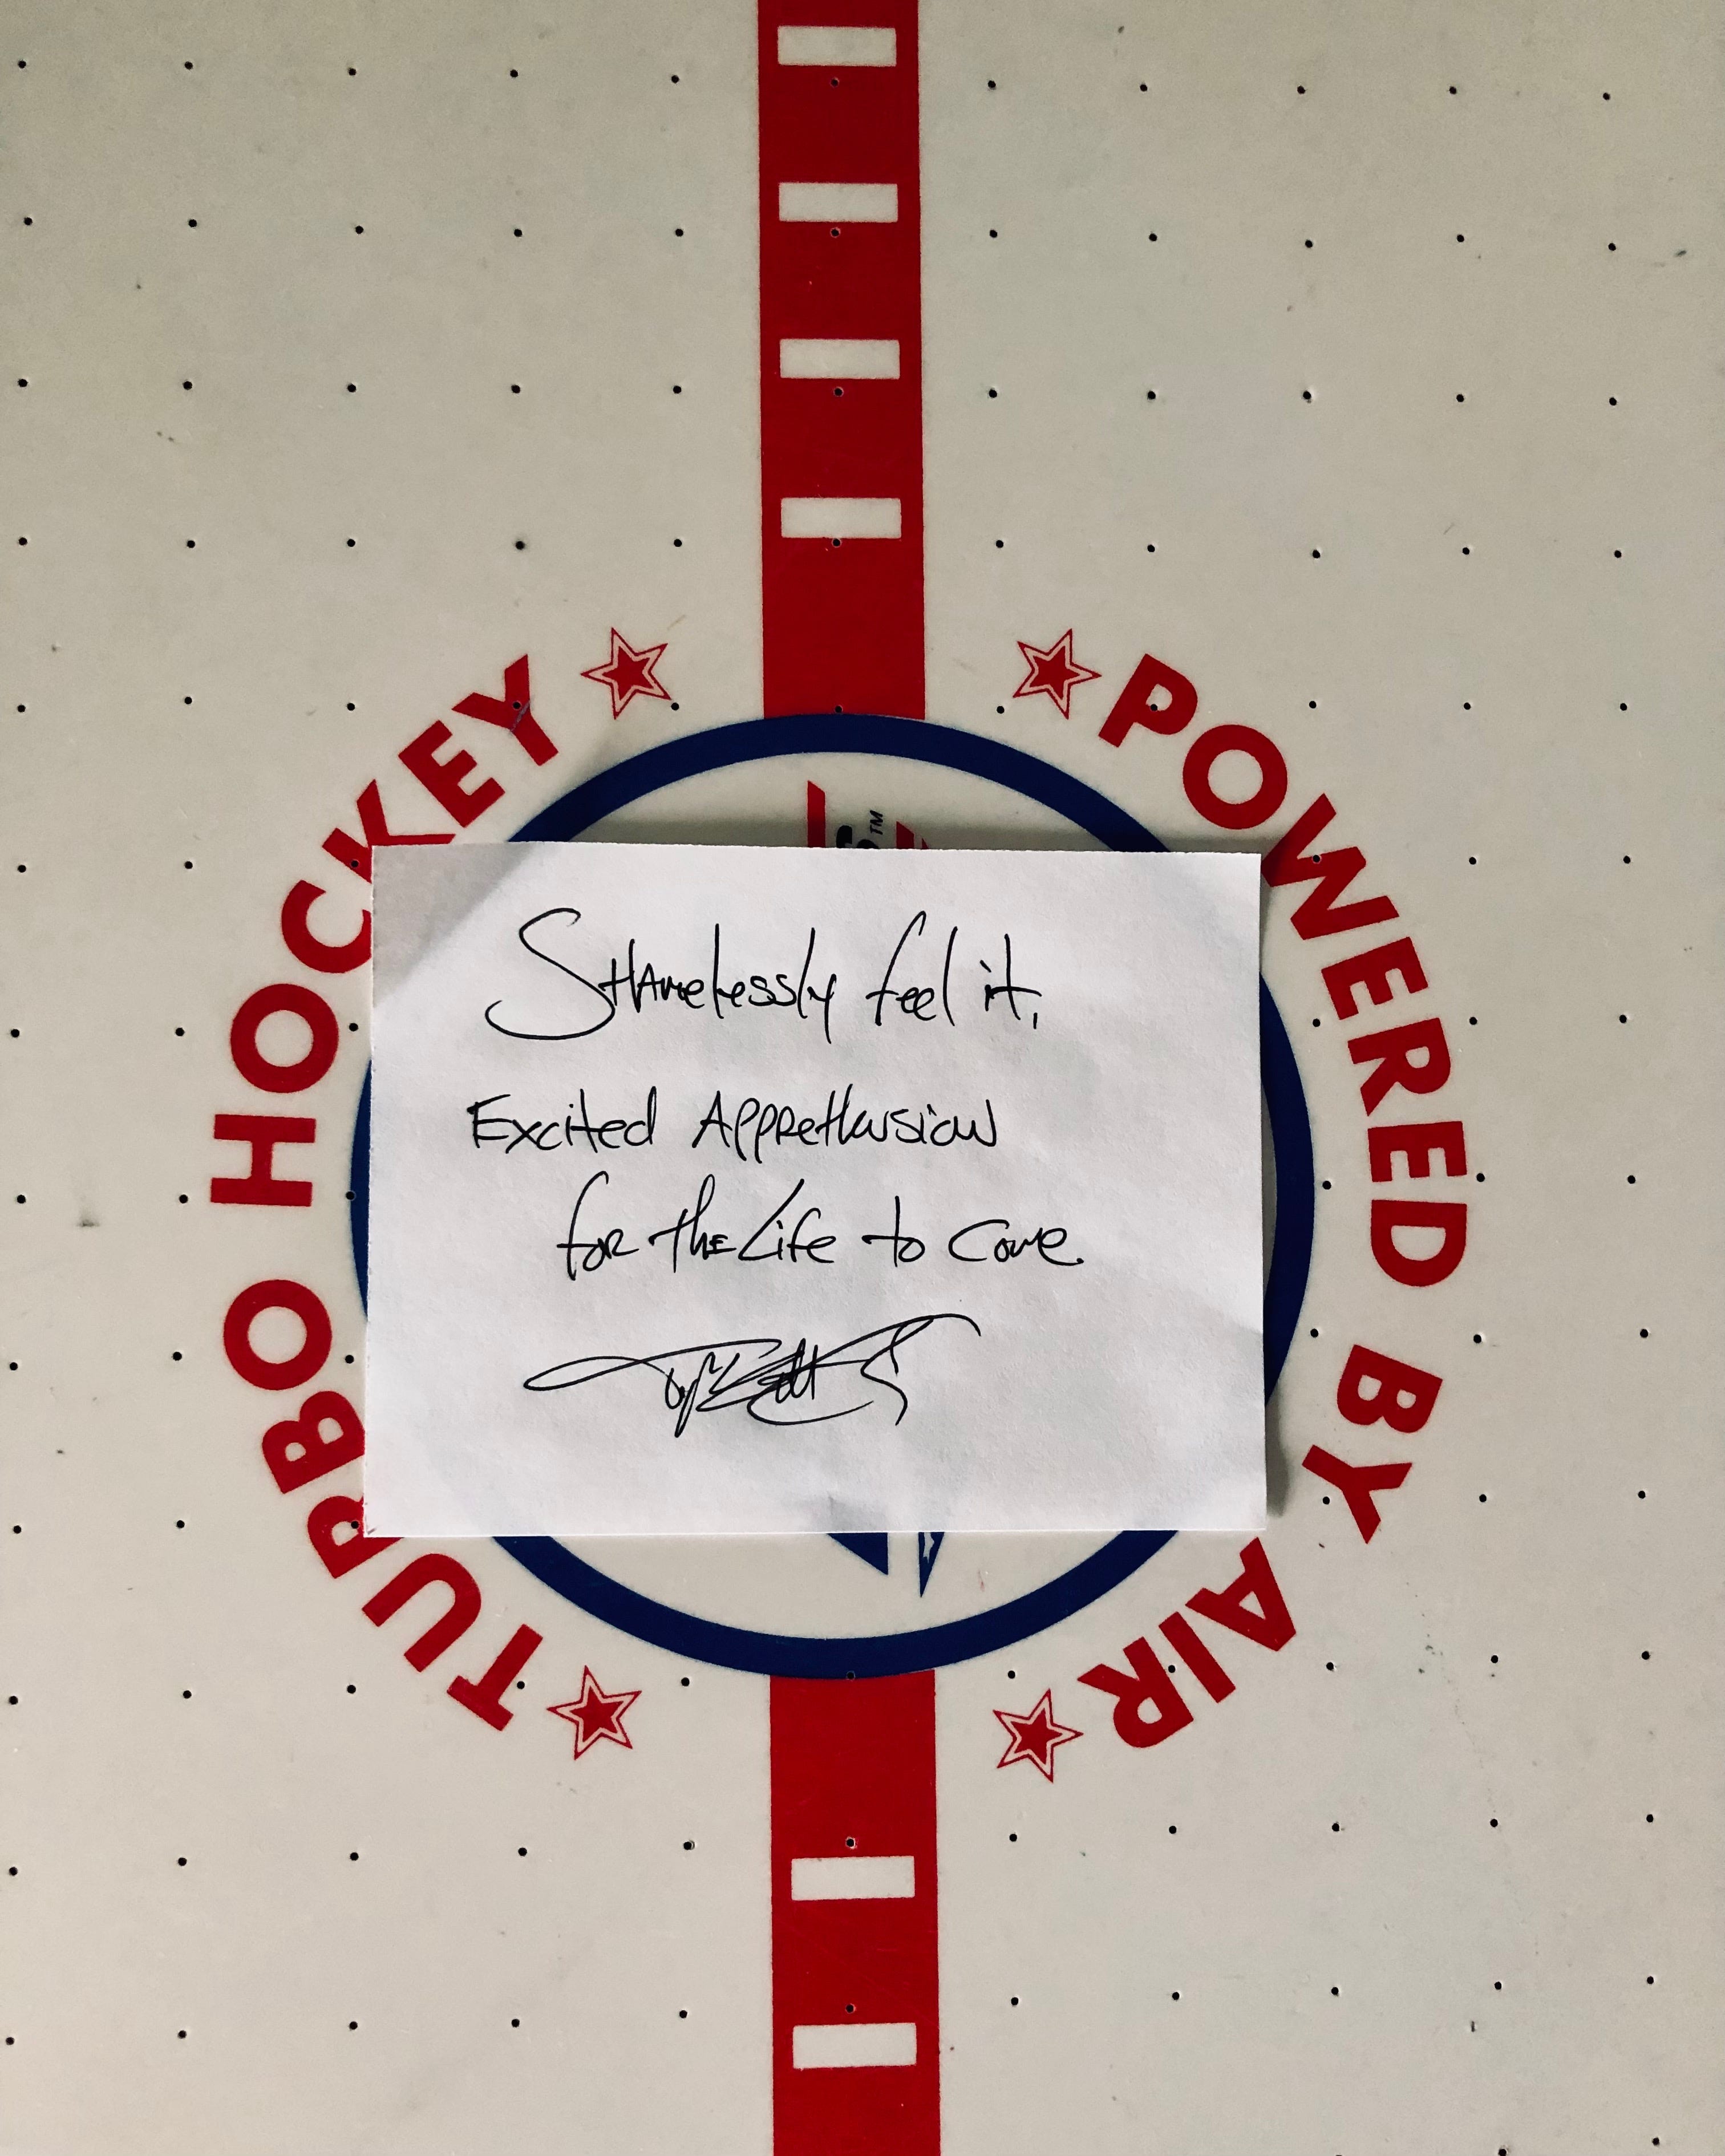 TURBO HOCKEY
POWERED BY AIR
S™
Shamelessly feel it,
Excited Apprehension
for the Life to come.